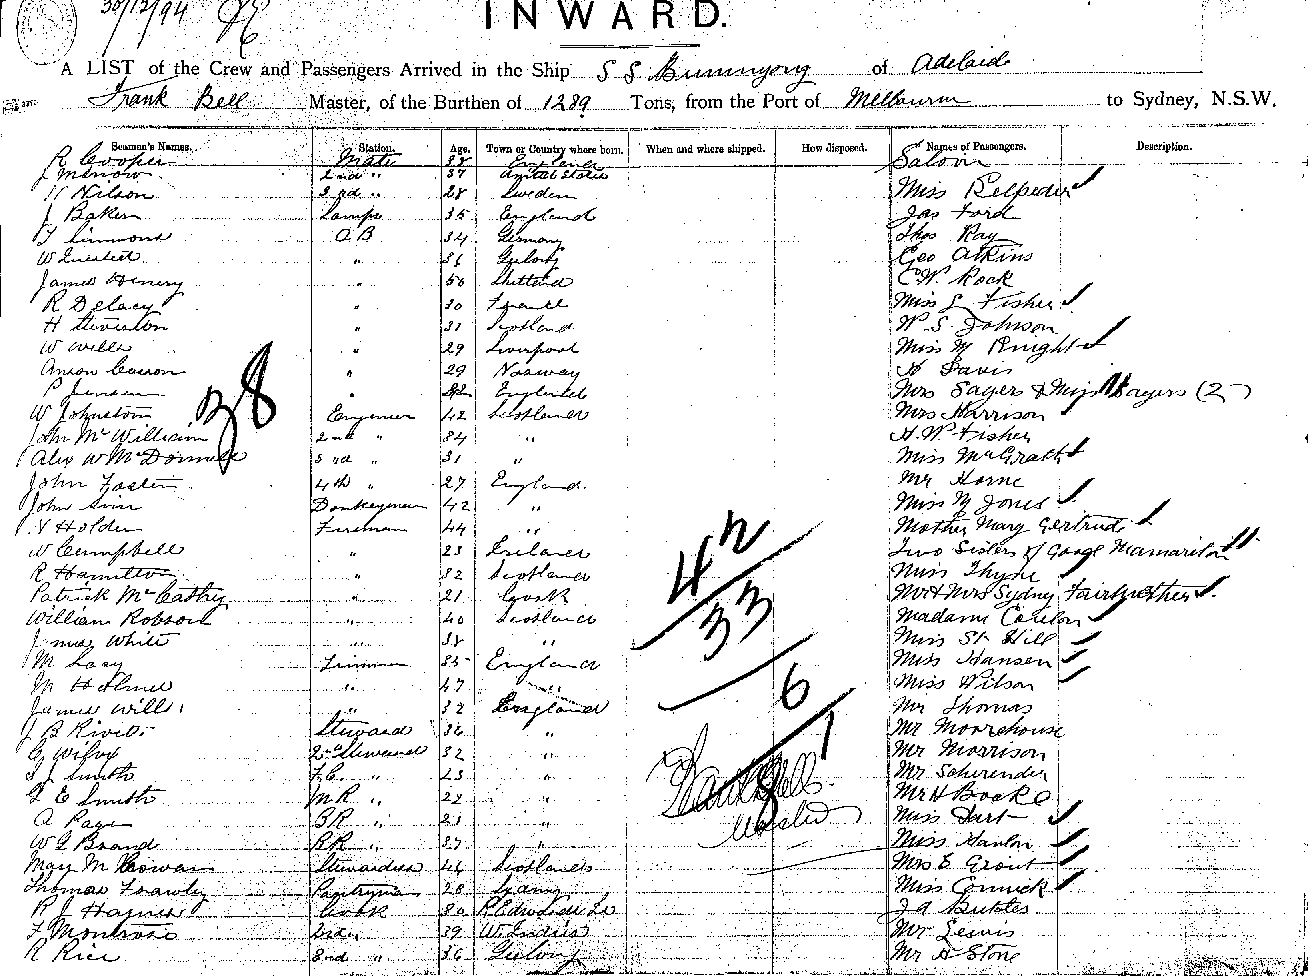 30/12/94
INWARD.
A LIST of the Crew and Passengers Arrived in the Ship S S Buninyong of Adelaide
Frank Bell Master, of the Burthen of 1289 Tons, from the Port of Melbourne to Sydney, N.S.W.
Seamen's Names. Station. Age. Town or Country where born. When and where shipped. How disposed. Names of Passengers. Description.
R Cooper Mate 38 England Saloon
2nd " 37 United States
N Nilson 3rd " 28 Sweden Miss
J Baker Lamps 35 England Jas Ford
AB 34 Germany Thos Ray
W " 36 Geo Atkins
James Henry " 50 C W Rock
R Delacy " 30 France Miss L Fisher
H " 31 Scotland W S Johnson
W Wills " 29 Liverpool Miss M Knight
" 29 Norway A Davis
P Jensen " England Mrs Sayer & Miss Sayers (2)
W Johnston Engineer 42 Scotland Mrs Harrison
John McWilliam 2nd " 34 " A W Fisher
Alex W McDonnell 3rd " 31 " Miss McGrath
John Foster 4th " 27 England Mr Horne
John Donkeyman 42 " Miss M Jones
Holder Fireman 44 " Mother Mary Gertrude
W Campbell " 23 Ireland Two Sisters of
R Hamilton " 32 Scotland Miss
Patrick McCathy " 21 Cork Mr & Mrs Sydney Fairweather
William Robson " 40 Scotland Madame
James White " 38 " Miss St Hill
M Lacy Trimmer 35 England Miss Hansen
M Holmes " 47 " Miss Wilson
James Wills " 32 England Mr Thomas
J B Steward 36 " Mr Moorehouse
G 2nd Steward 32 " Mr Morrison
J Smith F.C. " 23 " Mr
E Smith M R " 22 " Mr H Bock
A Page B R " 21 " Miss Dart
W G Brand R R " 27 " Miss Hanlon
May M Cowan Stewardess 46 Scotland Mrs E Grout
Thomas Frawley Pantryman 28 Sydney Miss
R J Haynes Cook 30 J A
F Montrose 2nd " 39 W Indies Mr Lewis
R Rice 3rd " 36 Geelong Mr A Stone
38
42
33
6
1
8
Frank Bell
Master